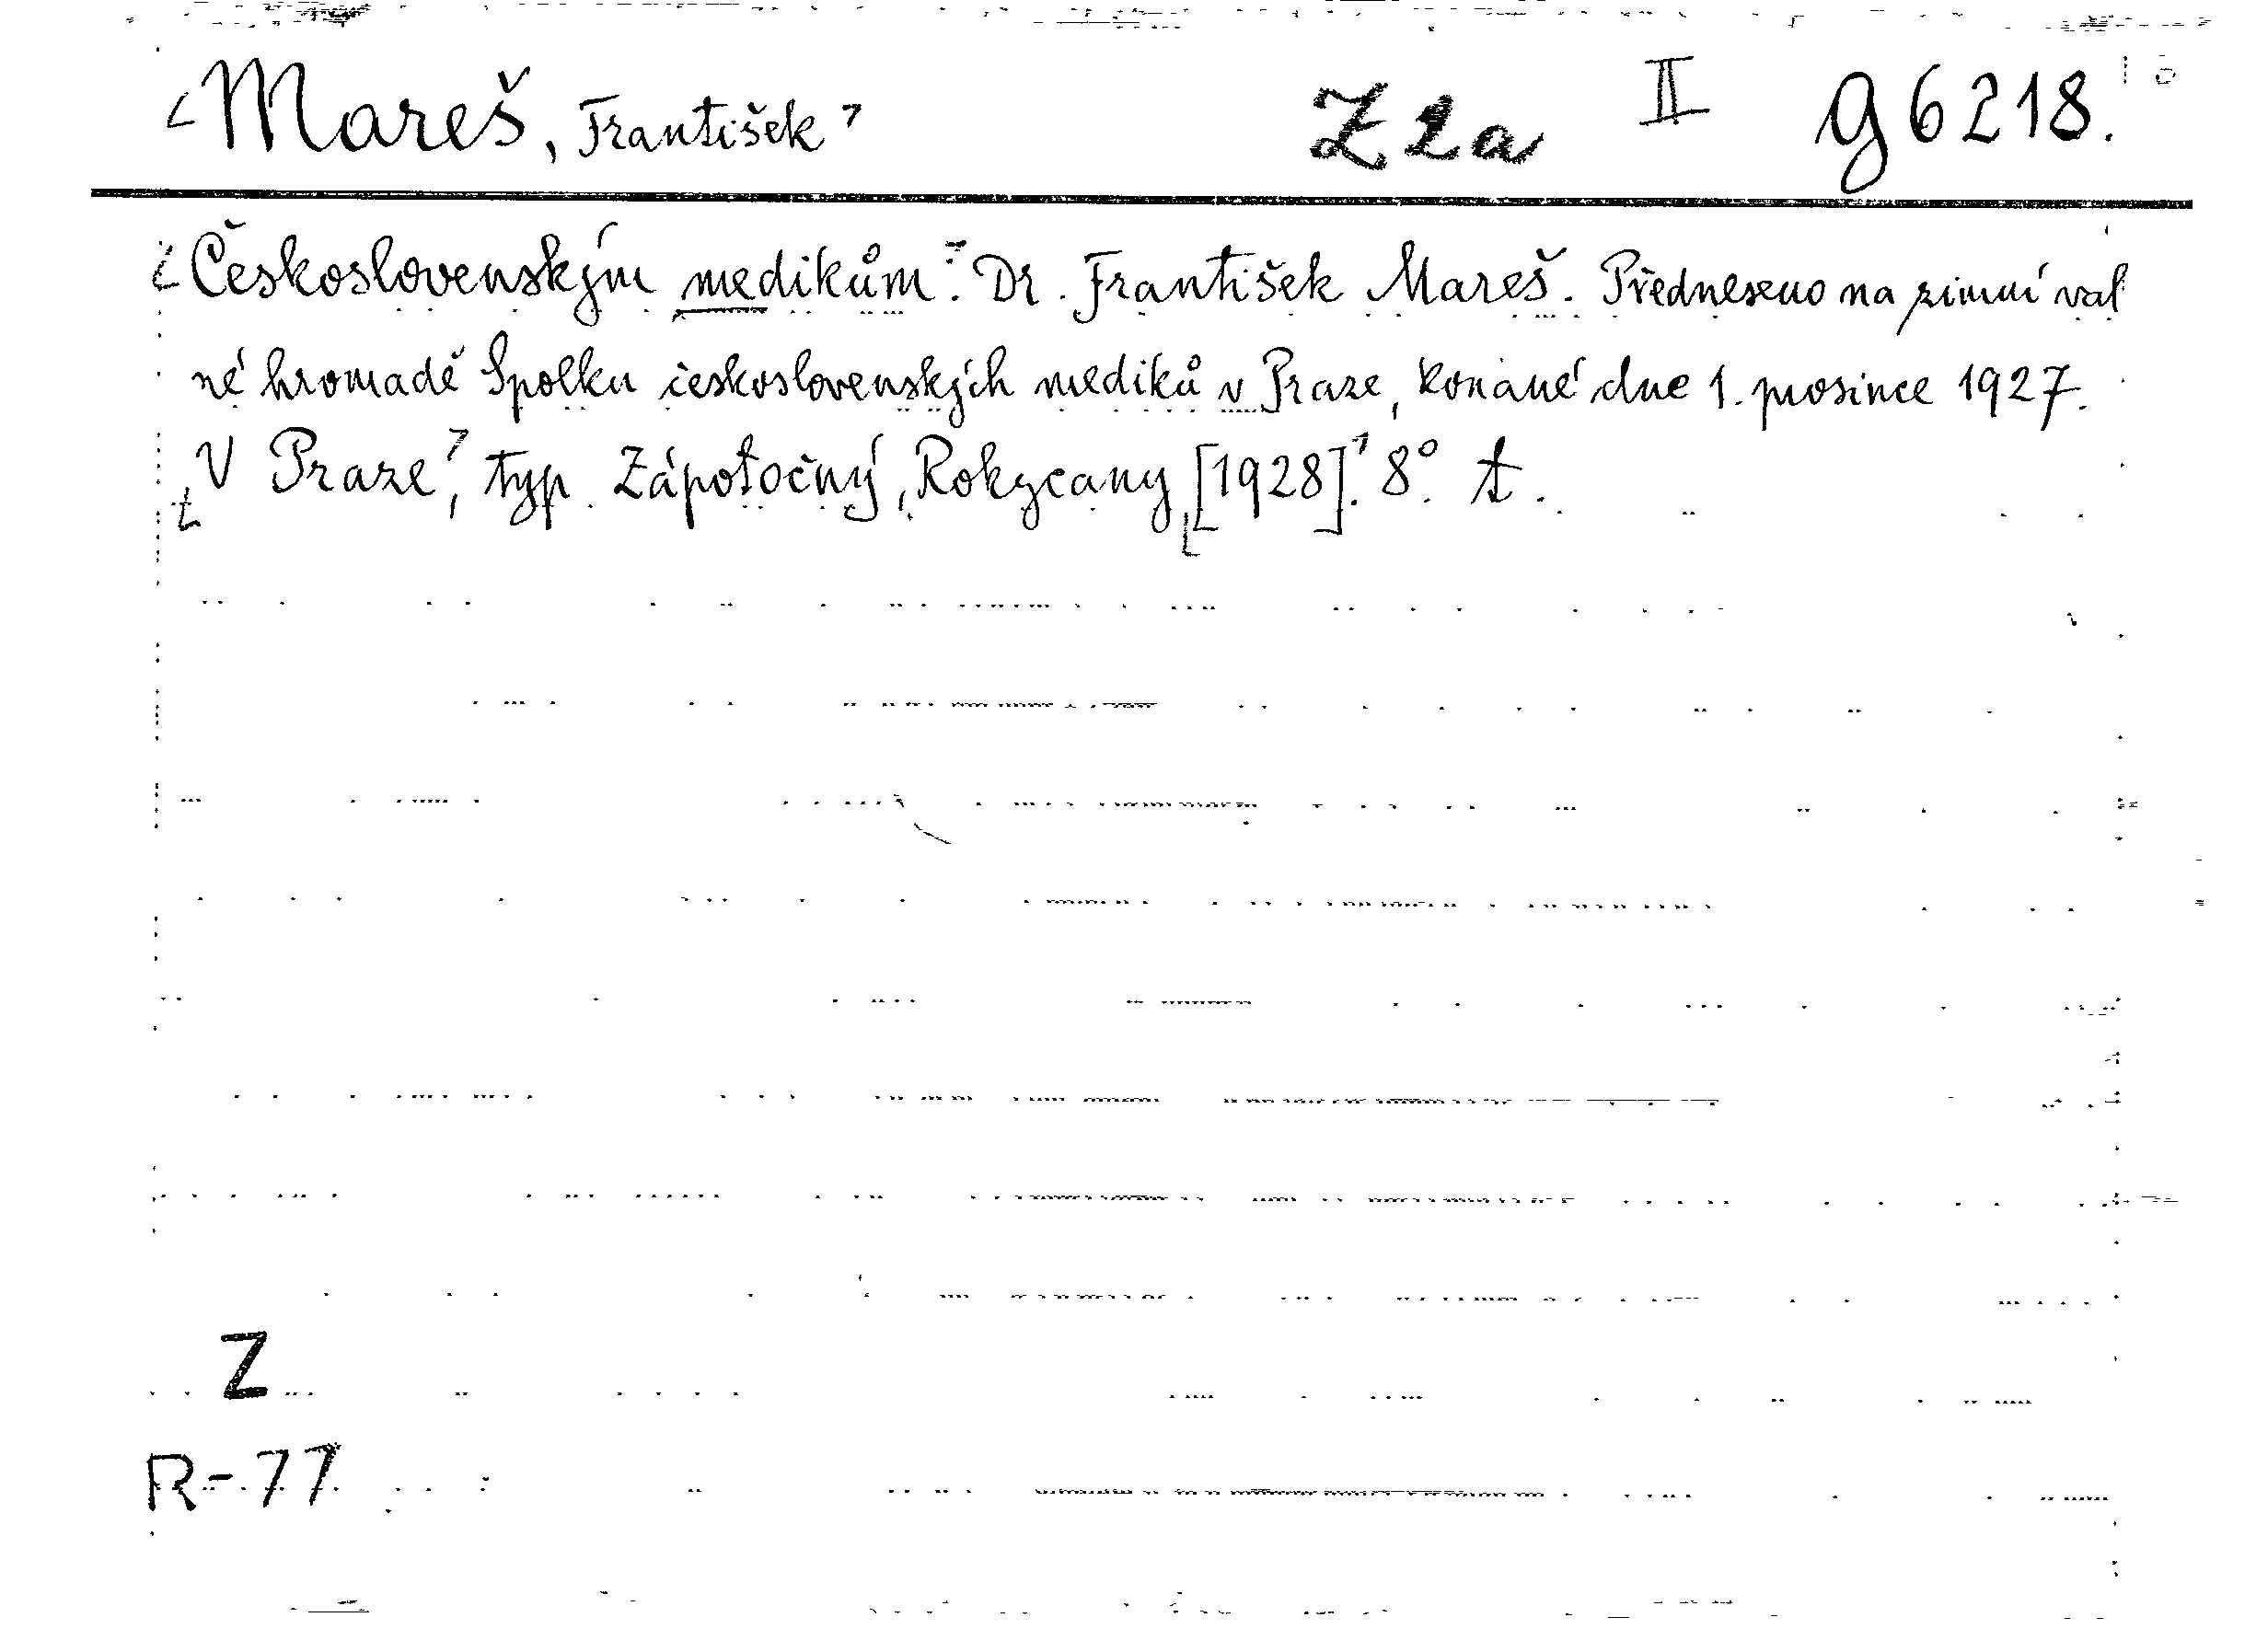 Mareš, František Z 2a II g 6218.
Československým medikům. Dr. František Mareš. Předneseno na zimní val
né hromadě Spolku československých mediků v Praze, konané dne 1. prosince 1927.
V Praze, typ. Zápotočný, Rokycany [1928]. 8°. t.
Z
R-77